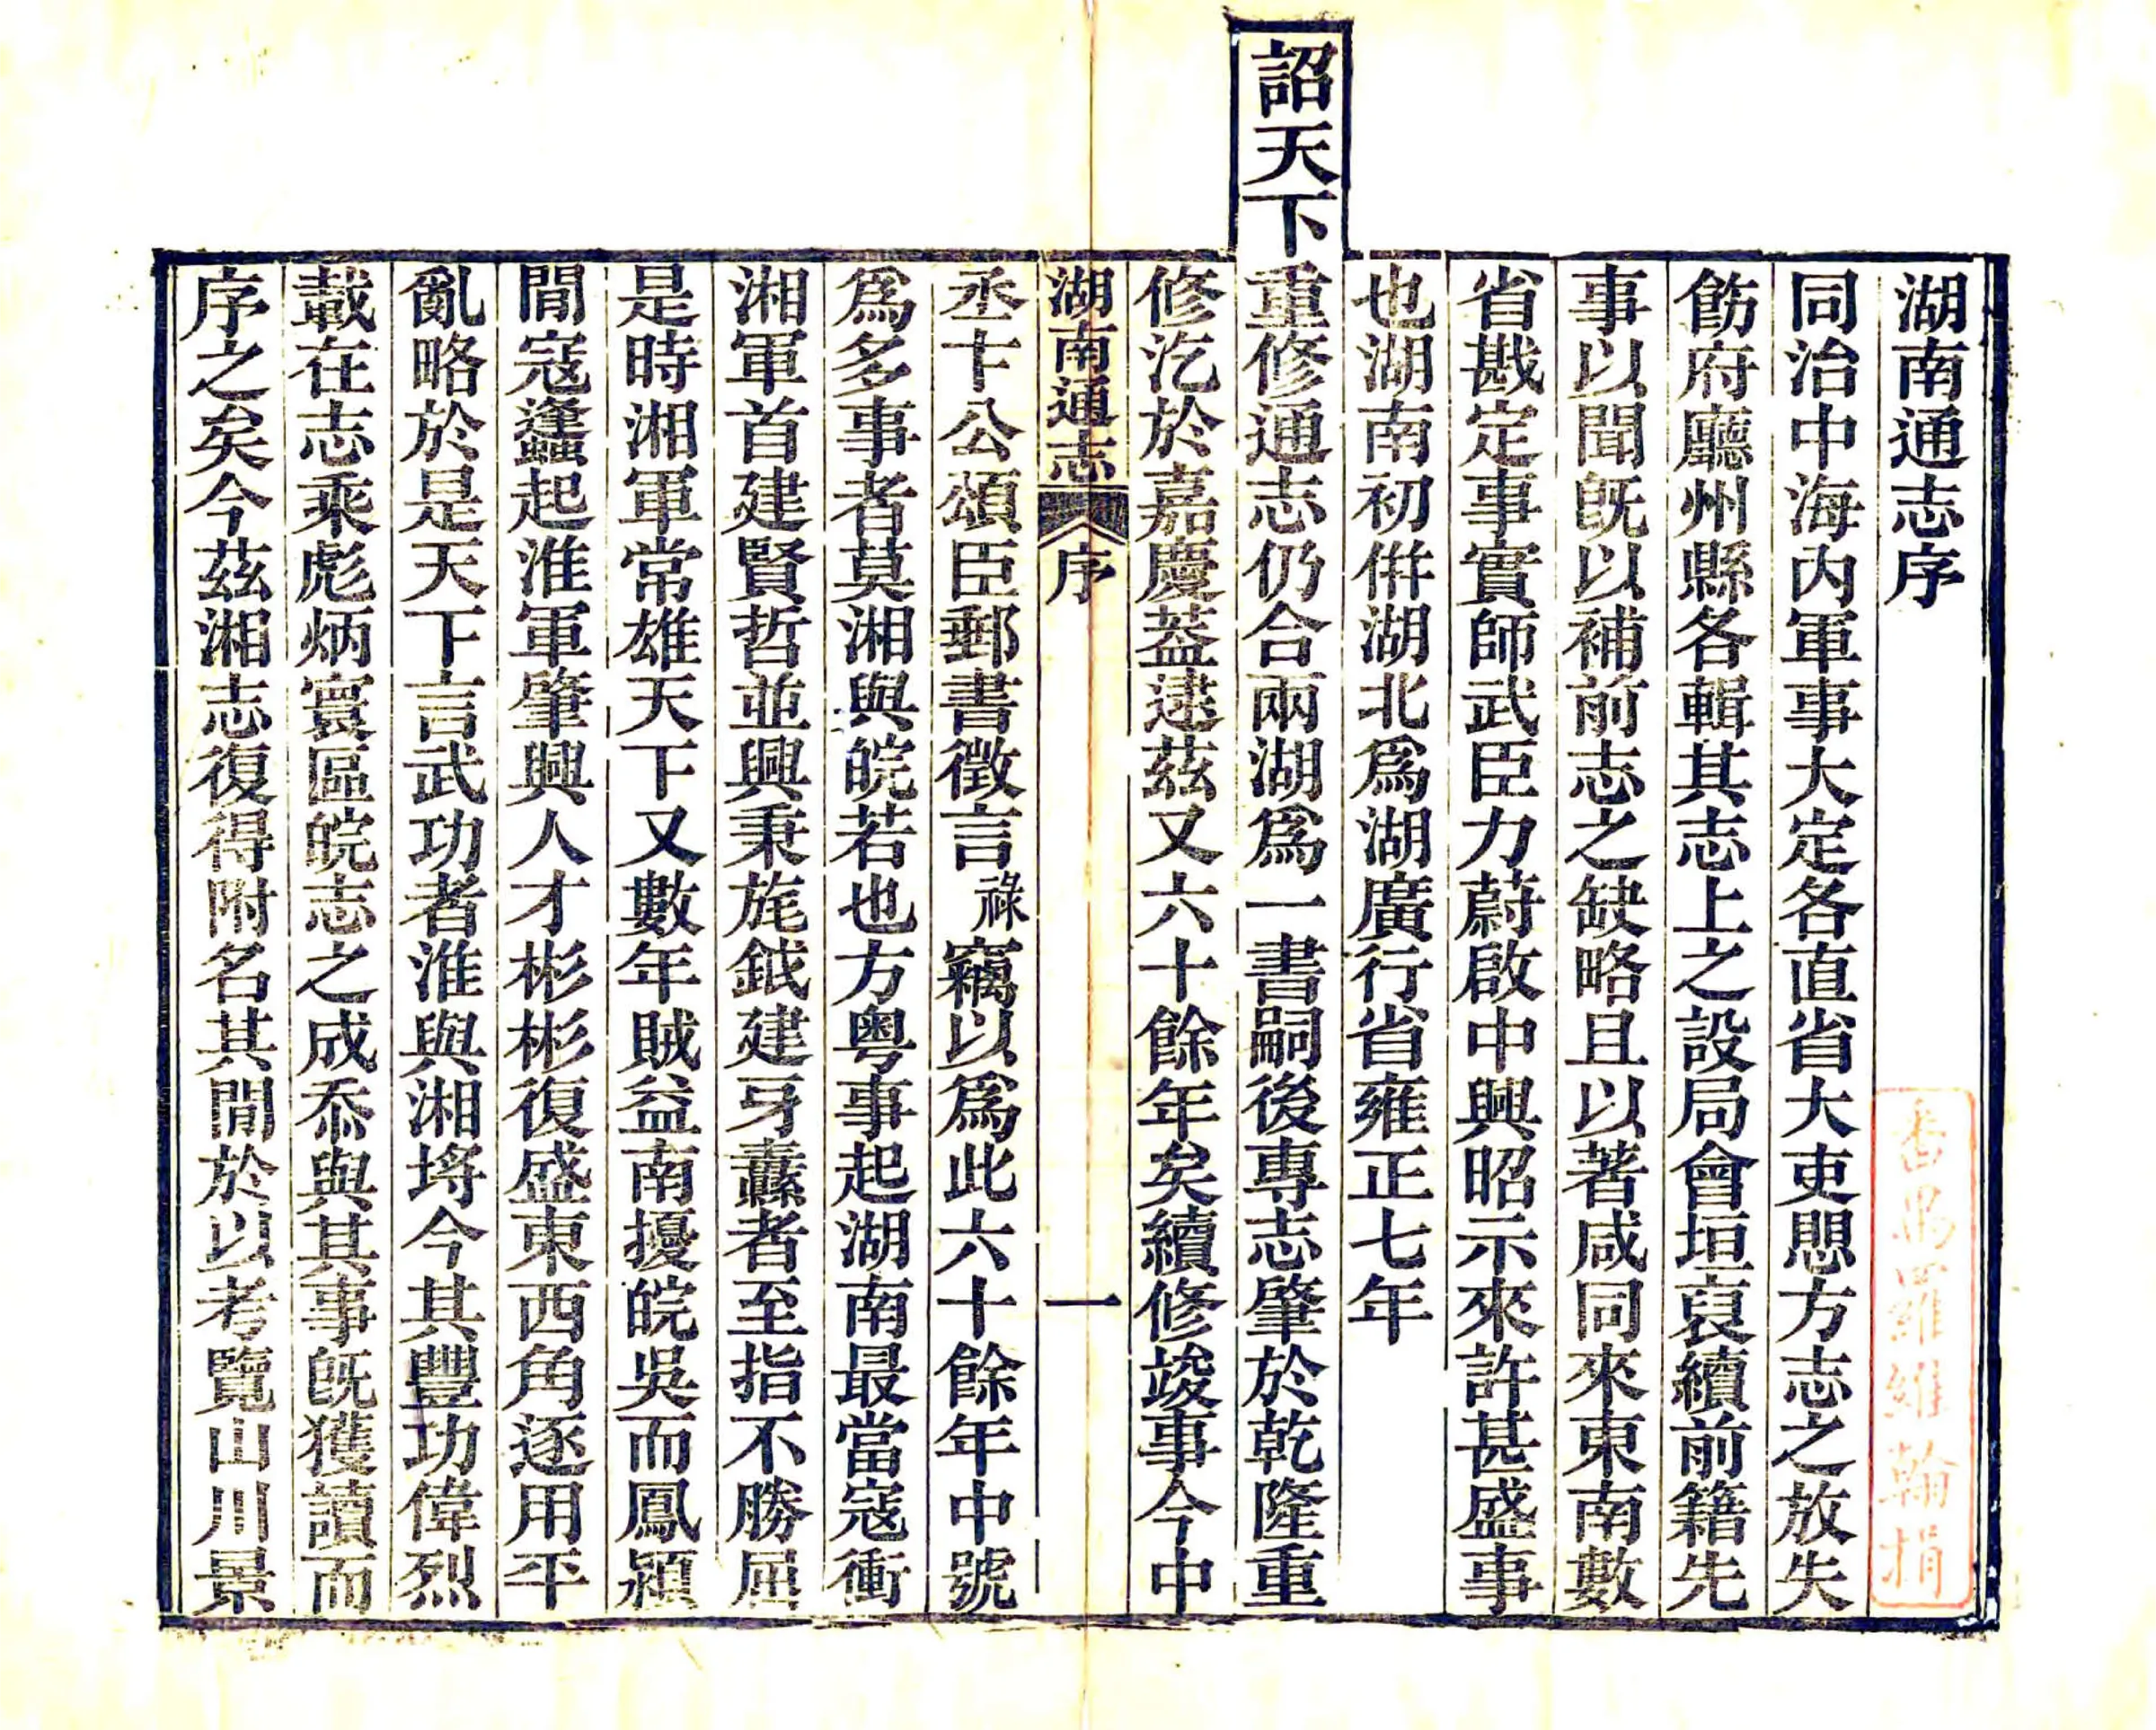 湖南通志序
同治中海內軍事大定各直省大吏愳方志之放失
飭府廳州縣各輯其志上之設局會垣裒續前籍先
事以聞旣以補前志之缺略且以著咸同來東南數
省戡定事實師武臣力蔚啟中興昭示來許甚盛事
也湖南初倂湖北爲湖廣行省雍正七年
詔天下重修通志仍合兩湖爲一書嗣後專志肇於乾隆重
修汔於嘉慶葢逮茲又六十餘年矣續修竣事今中
湖南通志 序 一
丞卞公頌臣郵書徵言祿竊以爲此六十餘年中號
爲多事者莫湘與皖若也方粤事起湖南最當寇衝
湘軍首建賢哲並興秉旄鉞建牙纛者至指不勝屈
是時湘軍常雄天下又數年賊益南擾皖吳而鳳潁
閒寇逢起淮軍肇興人才彬彬復盛東西角逐用平
亂略於是天下言武功者淮與湘埒今其豐功偉烈
載在志乘彪炳寰區皖志之成忝與其事旣獲讀而
序之矣今茲湘志復得附名其閒於以考覽山川景
番禺羅維翰捐